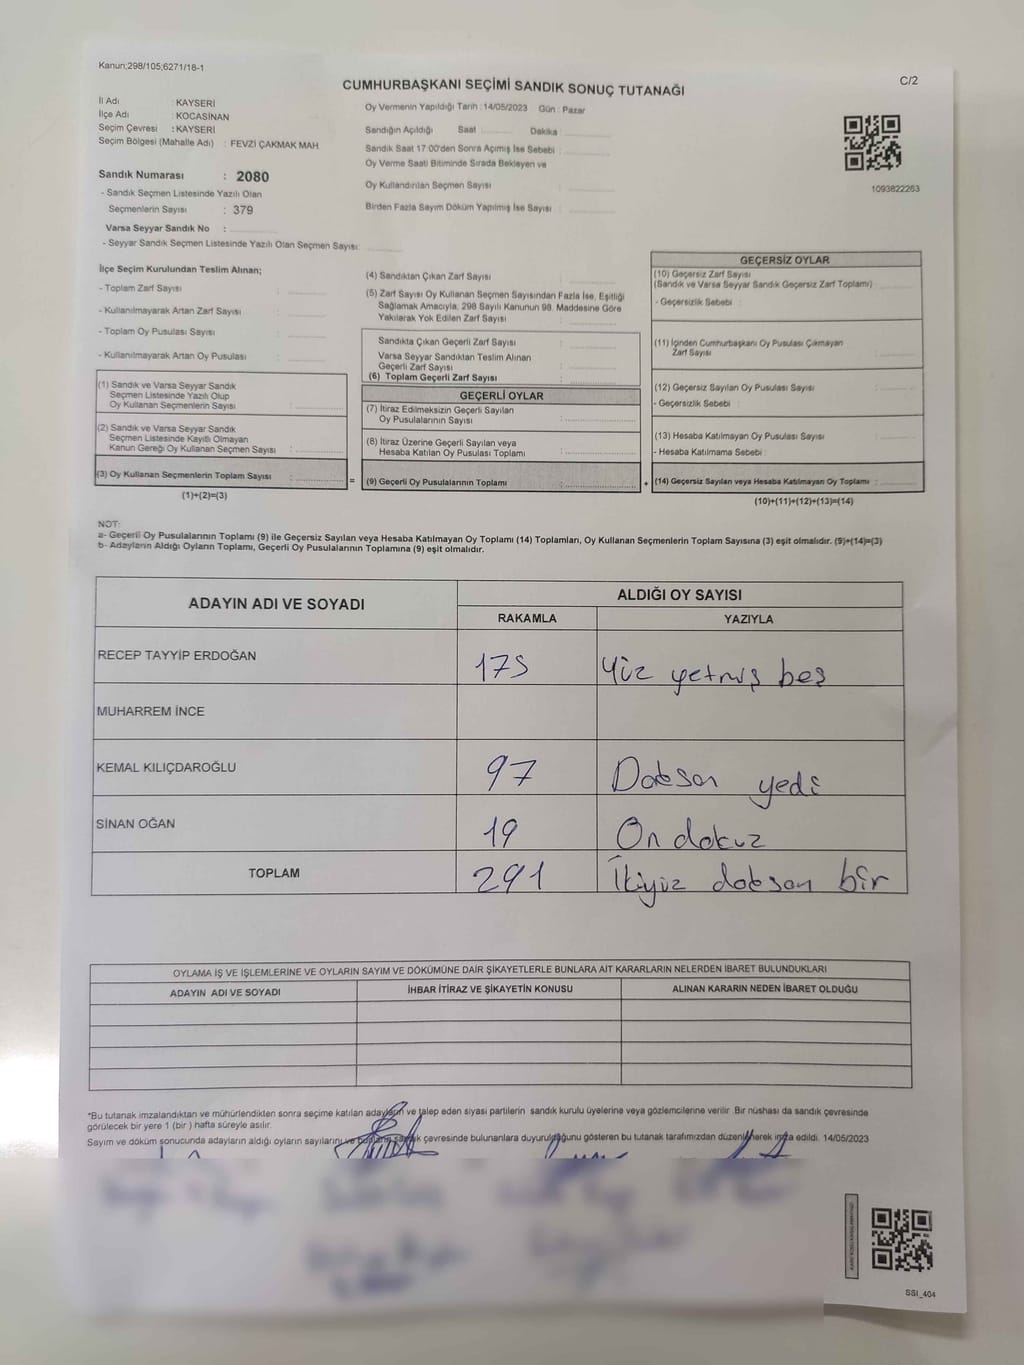 Kanun;298/105;6271/18-1
C/2
CUMHURBAŞKANI SEÇİMİ SANDIK SONUÇ TUTANAĞI
İl Adı : KAYSERİ
İlçe Adı : KOCASİNAN
Seçim Çevresi : KAYSERİ
Seçim Bölgesi (Mahalle Adı) : FEVZİ ÇAKMAK MAH
Sandık Numarası : 2080
- Sandık Seçmen Listesinde Yazılı Olan
Seçmenlerin Sayısı : 379
Varsa Seyyar Sandık No :
- Seyyar Sandık Seçmen Listesinde Yazılı Olan Seçmen Sayısı:
Oy Vermenin Yapıldığı Tarih : 14/05/2023 Gün : Pazar
Sandığın Açıldığı Saat Dakika :
Sandık Saat 17:00'den Sonra Açımış İse Sebebi :
Oy Verme Saati Bitiminde Sırada Bekleyen ve
Oy Kullandırılan Seçmen Sayısı :
Birden Fazla Sayım Döküm Yapılmış İse Sayısı :
1093822263
İlçe Seçim Kurulundan Teslim Alınan;
- Toplam Zarf Sayısı :
- Kullanılmayarak Artan Zarf Sayısı :
- Toplam Oy Pusulası Sayısı :
- Kullanılmayarak Artan Oy Pusulası :
(1) Sandık ve Varsa Seyyar Sandık
Seçmen Listesinde Yazılı Olup
Oy Kullanan Seçmenlerin Sayısı :
(2) Sandık ve Varsa Seyyar Sandık
Seçmen Listesinde Kayıtlı Olmayan
Kanun Gereği Oy Kullanan Seçmen Sayısı :
(3) Oy Kullanan Seçmenlerin Toplam Sayısı :
(1)+(2)=(3)
(4) Sandıktan Çıkan Zarf Sayısı :
(5) Zarf Sayısı Oy Kullanan Seçmen Sayısından Fazla İse, Eşitliği
Sağlamak Amacıyla, 298 Sayılı Kanunun 98. Maddesine Göre
Yakılarak Yok Edilen Zarf Sayısı :
Sandıkta Çıkan Geçerli Zarf Sayısı :
Varsa Seyyar Sandıktan Teslim Alınan
Geçerli Zarf Sayısı :
(6) Toplam Geçerli Zarf Sayısı :
GEÇERLİ OYLAR
(7) İtiraz Edilmeksizin Geçerli Sayılan
Oy Pusulalarının Sayısı :
(8) İtiraz Üzerine Geçerli Sayılan veya
Hesaba Katılan Oy Pusulası Toplamı :
= (9) Geçerli Oy Pusulalarının Toplamı :
GEÇERSİZ OYLAR
(10) Geçersiz Zarf Sayısı
(Sandık ve Varsa Seyyar Sandık Geçersiz Zarf Toplamı) :
- Geçersizlik Sebebi :
(11) İçinden Cumhurbaşkanı Oy Pusulası Çıkmayan
Zarf Sayısı :
(12) Geçersiz Sayılan Oy Pusulası Sayısı :
- Geçersizlik Sebebi :
(13) Hesaba Katılmayan Oy Pusulası Sayısı :
- Hesaba Katılmama Sebebi :
+ (14) Geçersiz Sayılan veya Hesaba Katılmayan Oy Toplamı :
(10)+(11)+(12)+(13)=(14)
NOT:
a- Geçerli Oy Pusulalarının Toplamı (9) ile Geçersiz Sayılan veya Hesaba Katılmayan Oy Toplamı (14) Toplamları, Oy Kullanan Seçmenlerin Toplam Sayısına (3) eşit olmalıdır. (9)+(14)=(3)
b- Adayların Aldığı Oyların Toplamı, Geçerli Oy Pusulalarının Toplamına (9) eşit olmalıdır.
ADAYIN ADI VE SOYADI ALDIĞI OY SAYISI
RAKAMLA YAZIYLA
RECEP TAYYİP ERDOĞAN 175 Yüz yetmiş beş
MUHARREM İNCE
KEMAL KILIÇDAROĞLU 97 Doksan yedi
SİNAN OĞAN 19 On dokuz
TOPLAM 291 İkiyüz doksan bir
OYLAMA İŞ VE İŞLEMLERİNE VE OYLARIN SAYIM VE DÖKÜMÜNE DAİR ŞİKAYETLERLE BUNLARA AİT KARARLARIN NELERDEN İBARET BULUNDUKLARI
ADAYIN ADI VE SOYADI İHBAR İTİRAZ VE ŞİKAYETİN KONUSU ALINAN KARARIN NEDEN İBARET OLDUĞU
*Bu tutanak imzalandıktan ve mühürlendikten sonra seçime katılan adayların ve talep eden siyasi partilerin sandık kurulu üyelerine veya gözlemcilerine verilir. Bir nüshası da sandık çevresinde
görülecek bir yere 1 (bir) hafta süreyle asılır.
Sayım ve döküm sonucunda adayların aldığı oyların sayılarını ve bunların sandık çevresinde bulunanlara duyurulduğunu gösteren bu tutanak tarafımızdan düzenlenerek imza edildi. 14/05/2023
SSI_404